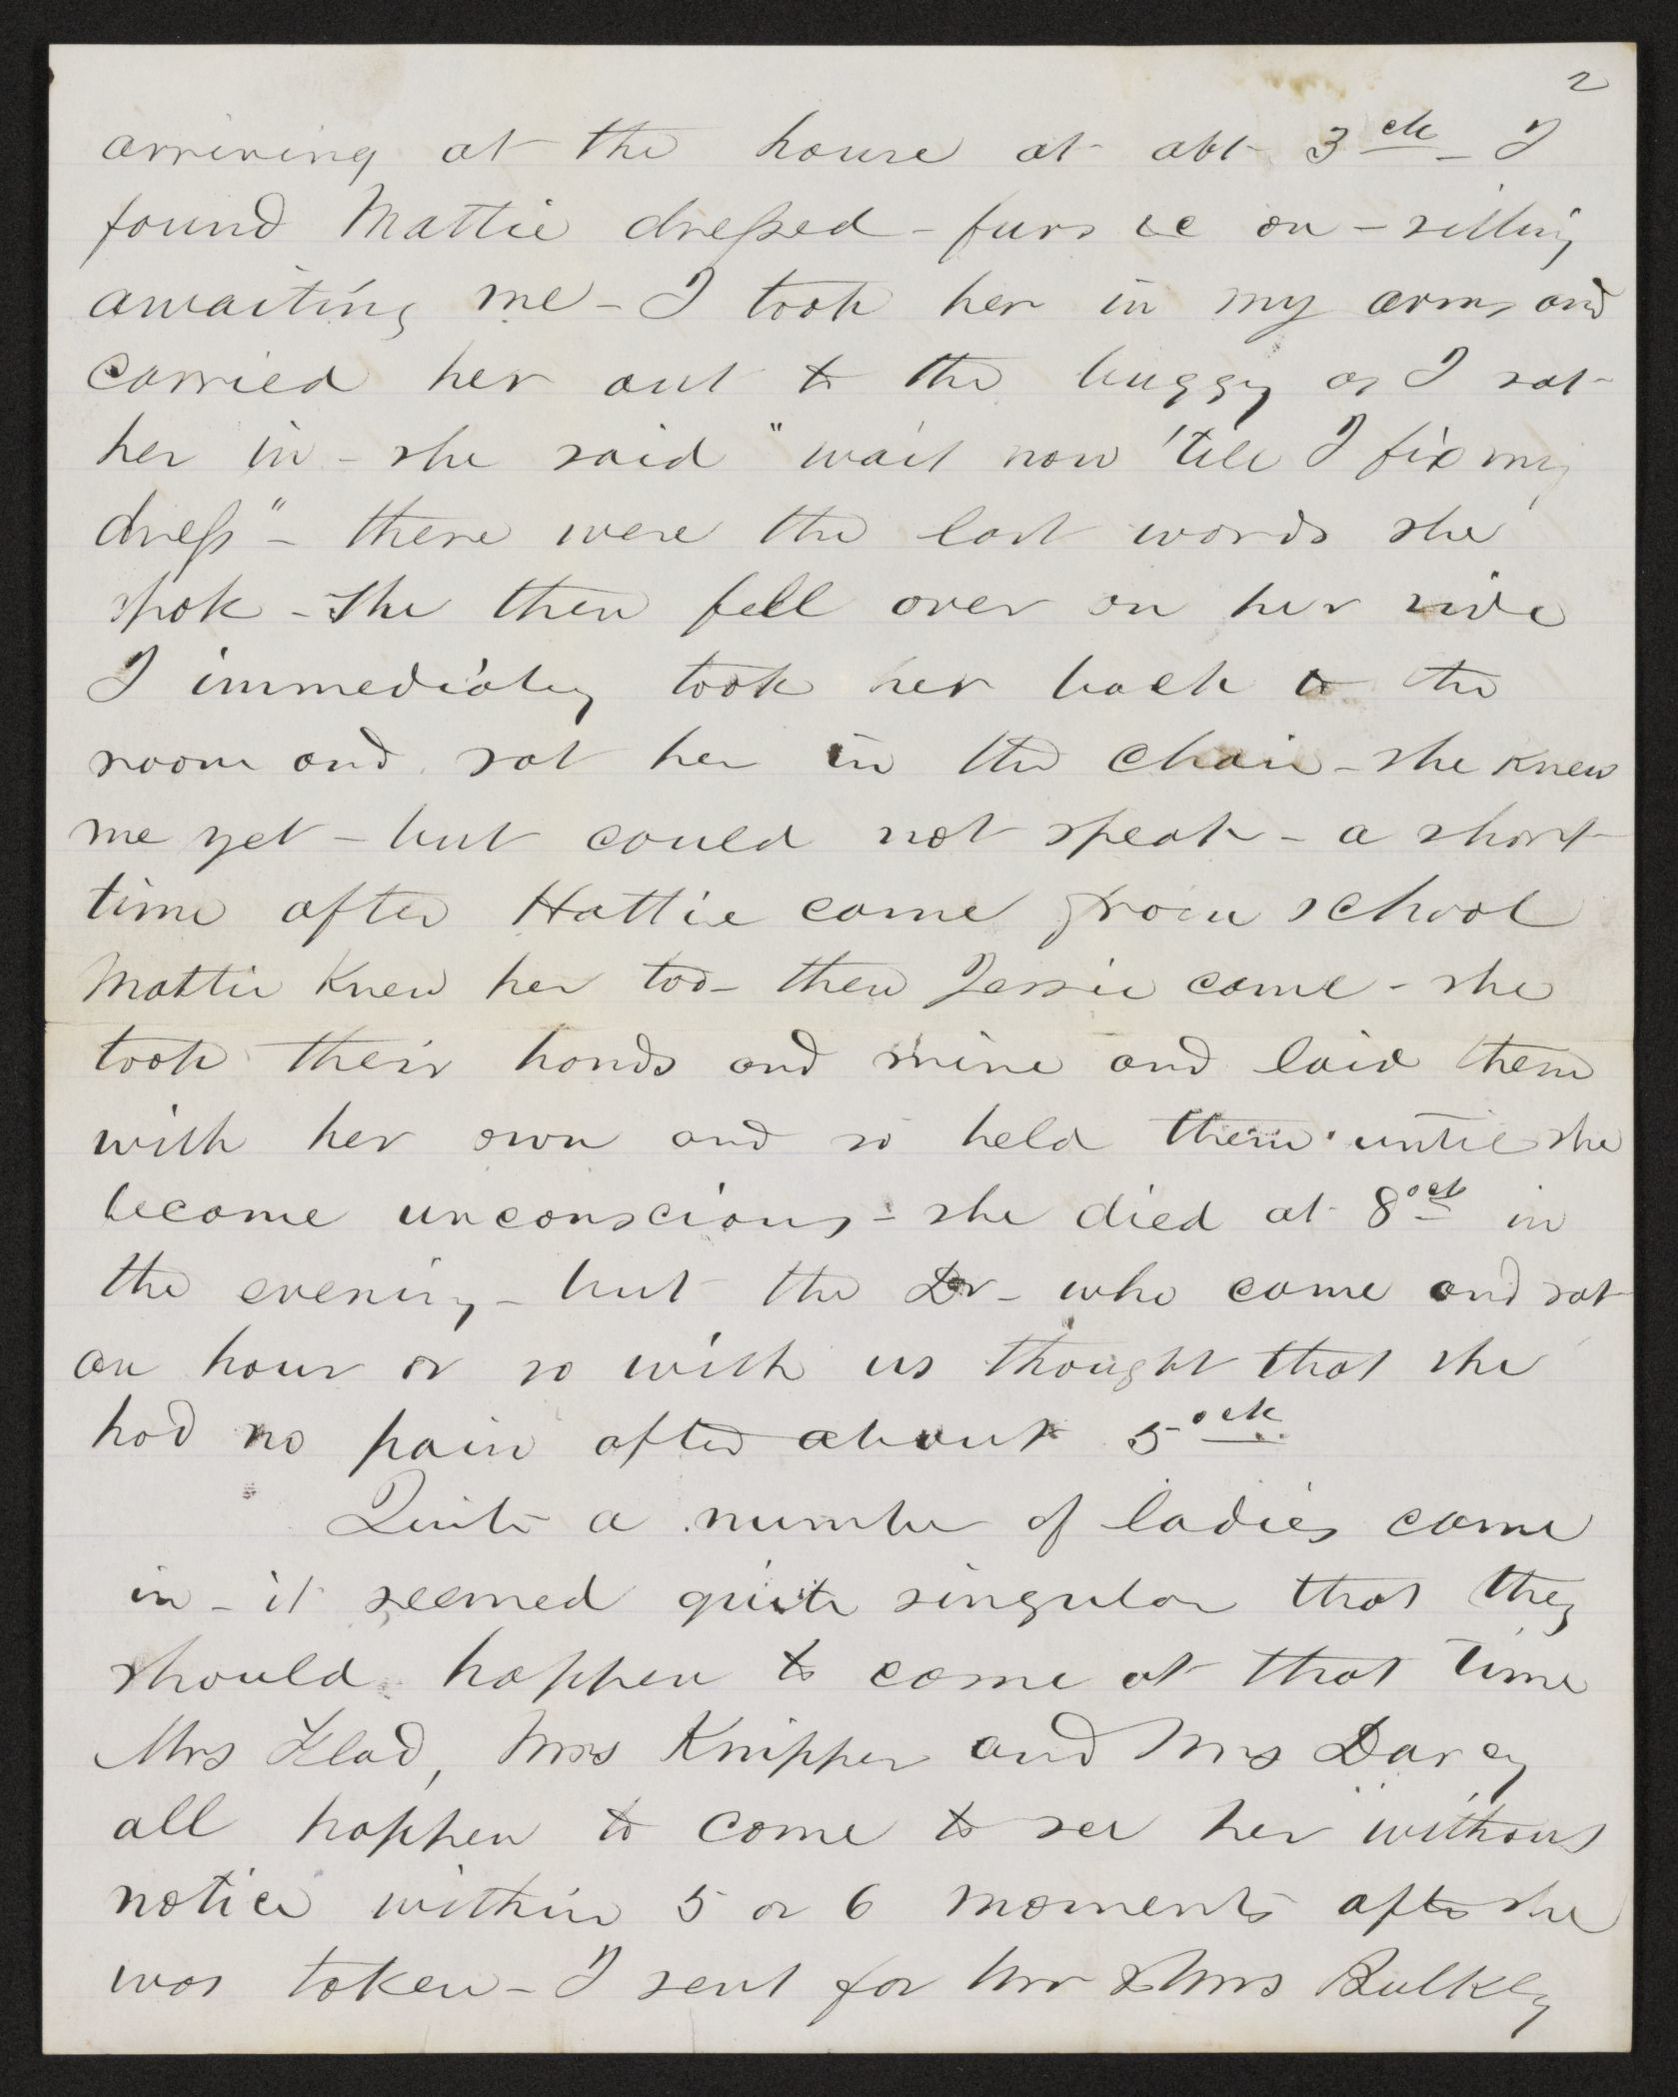 2
arriving at the house at abt 3 ock - I
found Mattie dressed - furs &c on - sitting
awaiting me - I took her in my arms and
carried her out to the buggy as I sat
her in - she said "wait now 'till I fix my
dress" - these were the last words she
spok - she then fell over on her side
I immediatey took her back to the
room and sat her in the chair - she knew
me yet - but could not speak - a short
time after Hattie came from school
Mattie knew her too - then Jessie came - she
took their hands and mine and laid them
with her own and so held them until she
became unconscious - she died at 8 ock in
the evening - but the Dr - who came and sat
an hour or so with us thought that she
had no pain after about 5 ock.
Quite a number of ladies came
in - it seemed quite singular that they
should happen to come at that time
Mrs Flad, Mrs Knipper and Mrs Darcy
all happen to come to see her without
notice within 5 or 6 moments after she
was taken - I sent for Mr & Mrs Bulkly